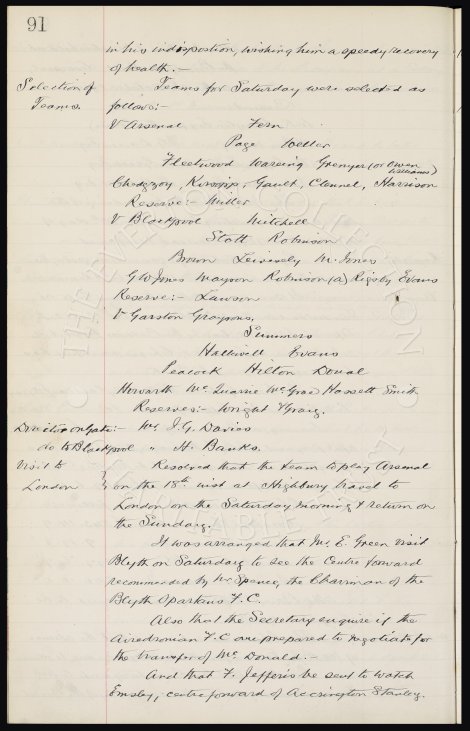 91
in his indisposition, wishing him a speedy recovery
of health. -
Selection of Teams for Saturday were selected as
Teams. follows:-
V Arsenal Fern
Page Weller
Fleetwood Wareing Grenyer (or Owen Williams)
Chedgzoy, Kirsopp, Gault, Clennel, Harrison
Reserve:- Miller
V Blackpool Mitchell
Stott Robinson
Brown Leivesely McJones
G W Jones Mayson Robinson (A) Rigsby Evans
Reserve:- Lawson
V Garston Graysons.
Summers
Halliwell Evans
Peacock Hilton Donal
Howarth McQuarrie McGrae Hassett Smith
Reserves:- Wright & Graig.
Direction on Gate:- Mr J. G. Davies
do to Blackpool " H. Banks.
Visit to Resolved that the team to play Arsenal
London on the 18th inst at Highbury travel to
London on the Saturday morning & return on
the Sunday.
It was arranged that Mr E. Green visit
Blyth on Saturday to see the Centre forward
recommended by Mr Spence, the Chairman of the
Blyth Spartans F. C.
Also that the Secretary enquire if the
Airedronian F. C are prepared to negotiate for
the transfer of McDonald. -
And that F. Jefferis be sent to watch
Emsley, centre forward of Accrington Stanley.